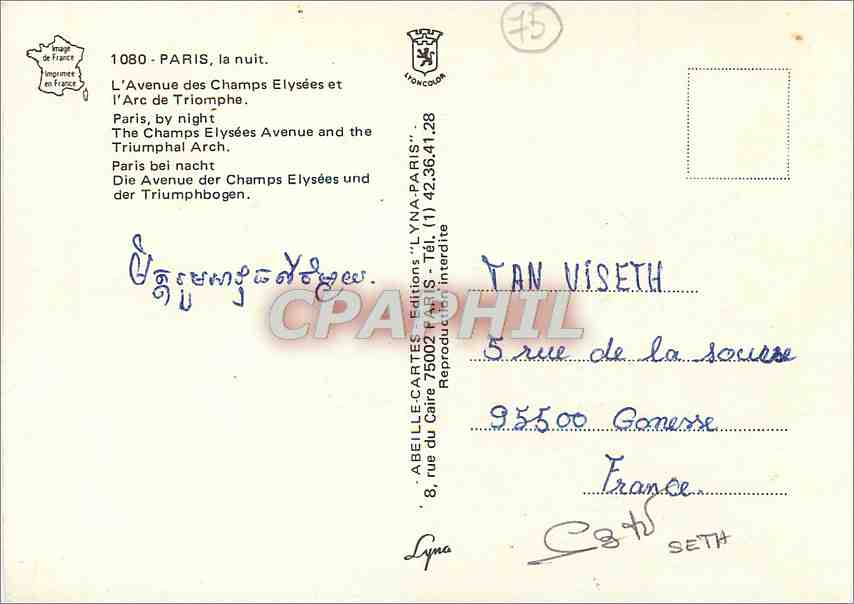 Image
de France
Imprimée
en France
1080 - PARIS, la nuit.
L'Avenue des Champs Elysées et
l'Arc de Triomphe.
Paris, by night
The Champs Elysées Avenue and the
Triumphal Arch.
Paris bei nacht
Die Avenue der Champs Elysées und
der Triumphbogen.
មិត្តរួម
75
LYONCOLOR
ABEILLE-CARTES - Editions "LYNA-PARIS" -
8, rue du Caire 75002 PARIS - Tél. (1) 42.36.41.28
Reproduction interdite
Lyna
CPAPHIL
TAN VISETH
5 rue de la source
95500 Gonesse
France.
SETH